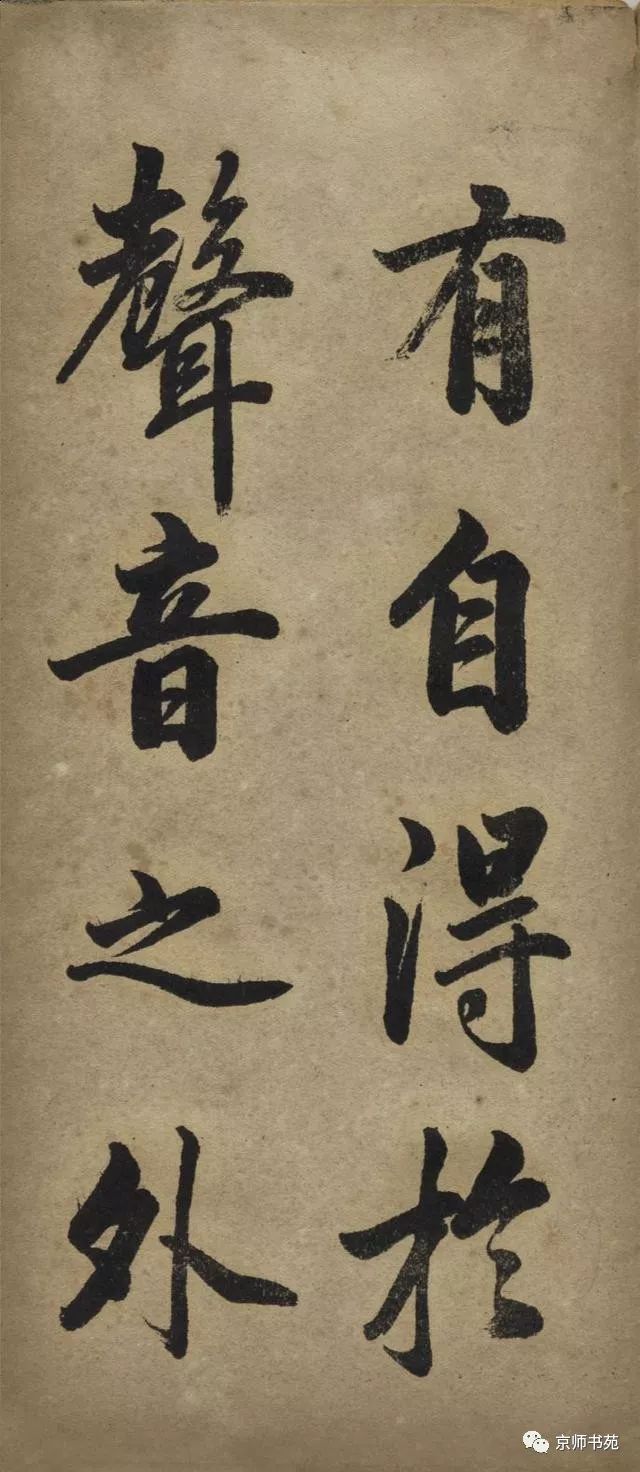 有自得於
聲音之外
京师书苑